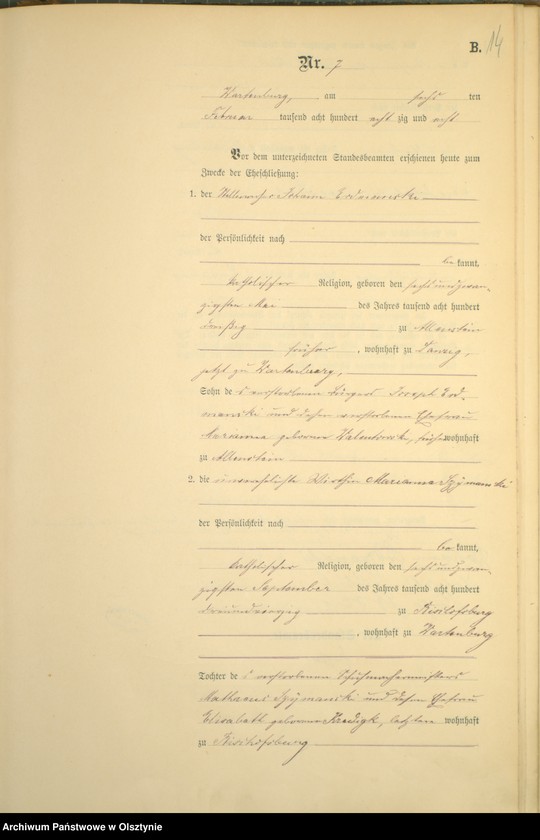 B. 14
Nr. 7
Wartenburg, am sechs ten
Februar tausend acht hundert acht zig und acht
Vor dem unterzeichneten Standesbeamten erschienen heute zum
Zwecke der Eheschließung:
1. der Johann
der Persönlichkeit nach
be kannt,
katholischer Religion, geboren den sechsundzwan-
zigsten Mai des Jahres tausend acht hundert
dreißig zu Allenstein
früher, wohnhaft zu Danzig,
jetzt zu Wartenburg,
Sohn de s verstorbenen Bürgers Joseph
und dessen verstorbenen Ehefrau
Marianna geborene wohnhaft
zu Allenstein
2. die unverehelichte Wirthin Marianna Szymanski
der Persönlichkeit nach
be kannt,
katholischer Religion, geboren den sechsundzwan-
zigsten September des Jahres tausend acht hundert
zu Bischofsburg
, wohnhaft zu Wartenburg
Tochter de s verstorbenen Schuhmachermeisters
Mathaeus Szymanski und dessen Ehefrau
Elisabeth geborene letztere wohnhaft
zu Bischofsburg
Archiwum Państwowe w Olsztynie